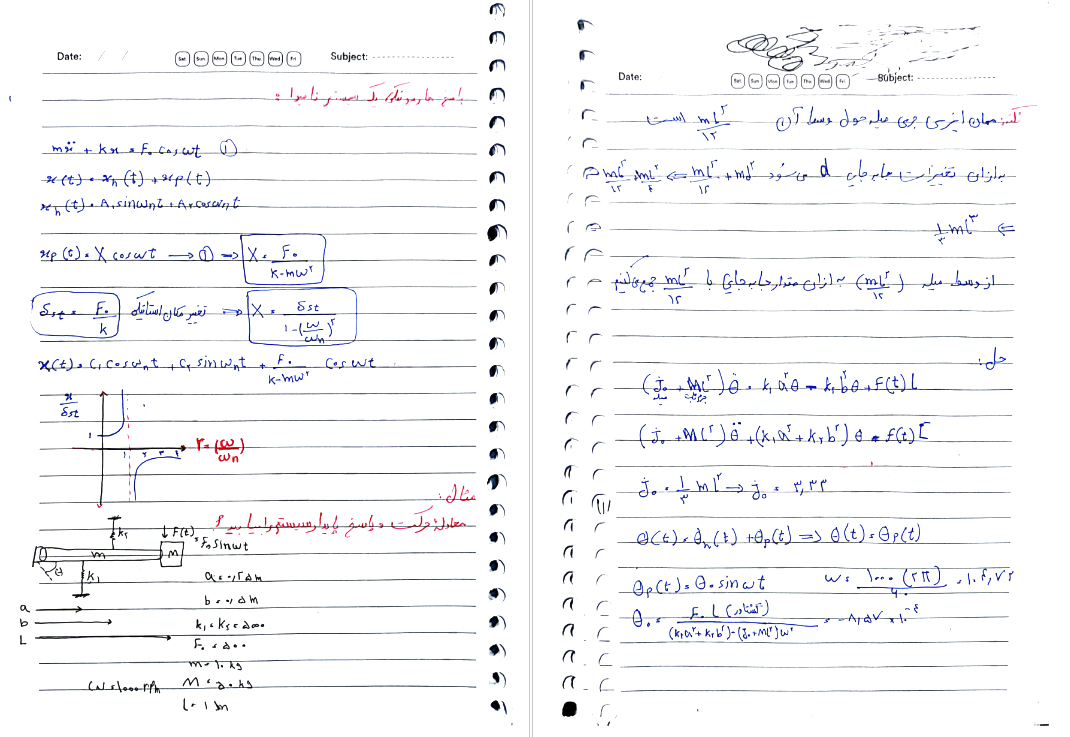 Date: / /
Sat Sun Mon Tue Thu Wed Fri
Subject:
پاسخ هارمونیکی یک سیستم نامیرا :
mẍ + kx = F₀ cosωt ①
x(t) = xₕ(t) + xp(t)
xₕ(t) = A₁ sinωₙt + A₂ cosωₙt
xp(t) = X cosωt → ① ⇒ X = F₀ / (k-mω²)
δst = F₀ / k تغییر مکان استاتیکی ⇒ X = δst / (1-(ω/ωₙ)²)
x(t) = C₁ cosωₙt + C₂ sinωₙt + F₀ / (k-mω²) cosωt
x / δst
۱
۱ ۲ ۳ ۴
r = (ω/ωₙ)
مثال:
معادله حرکت و پاسخ پایدار سیستم را بیابید ؟
k₂
↓ F(t) = F₀ sinωt
m
M
θ
k₁
a = ۰٫۲۵m
a
b = ۰٫۵m
b
k₁ = k₂ = ۵۰۰۰
L
F₀ = ۵۰۰
m = ۱۰ kg
ω = ۱۰۰۰ rpm
M = ۵۰ kg
L = ۱m
Date:
Sat Sun Mon Tue Thu Wed Fri
Subject:
نکته: ممان اینرسی جرمی میله حول وسط آن mL²/۱۲ است
به ازای تغییرات جابه جایی d می شود mL²/۱۲ + md² ⇐ mL²/۱۲ + mL²/۴ ⇐
⇐ ۱/۳ mL³
از وسط میله (mL²/۱۲) به ازای مقدار جابه جایی با mL²/۱۲ جمع می کنیم
حل:
(J₀ + ML²) θ̈ = k₁a²θ - k₂b²θ + F(t)L
میله
(J₀ + ML²) θ̈ + (k₁a² + k₂b²) θ = f(t)L
J₀ = ۱/۳ mL² → J₀ = ۳٫۳۳
θ(t) = θₕ(t) + θp(t) ⇒ θ(t) = θp(t)
θp(t) = θ₀ sinωt ω = ۱۰۰۰(۲π)/۶۰ = ۱۰۴٫۷۲
θ₀ = F₀L (گشتاور) / ((k₁a² + k₂b²) - (J₀ + ML²)ω²) = -۸٫۵۷ × ۱۰⁻⁴